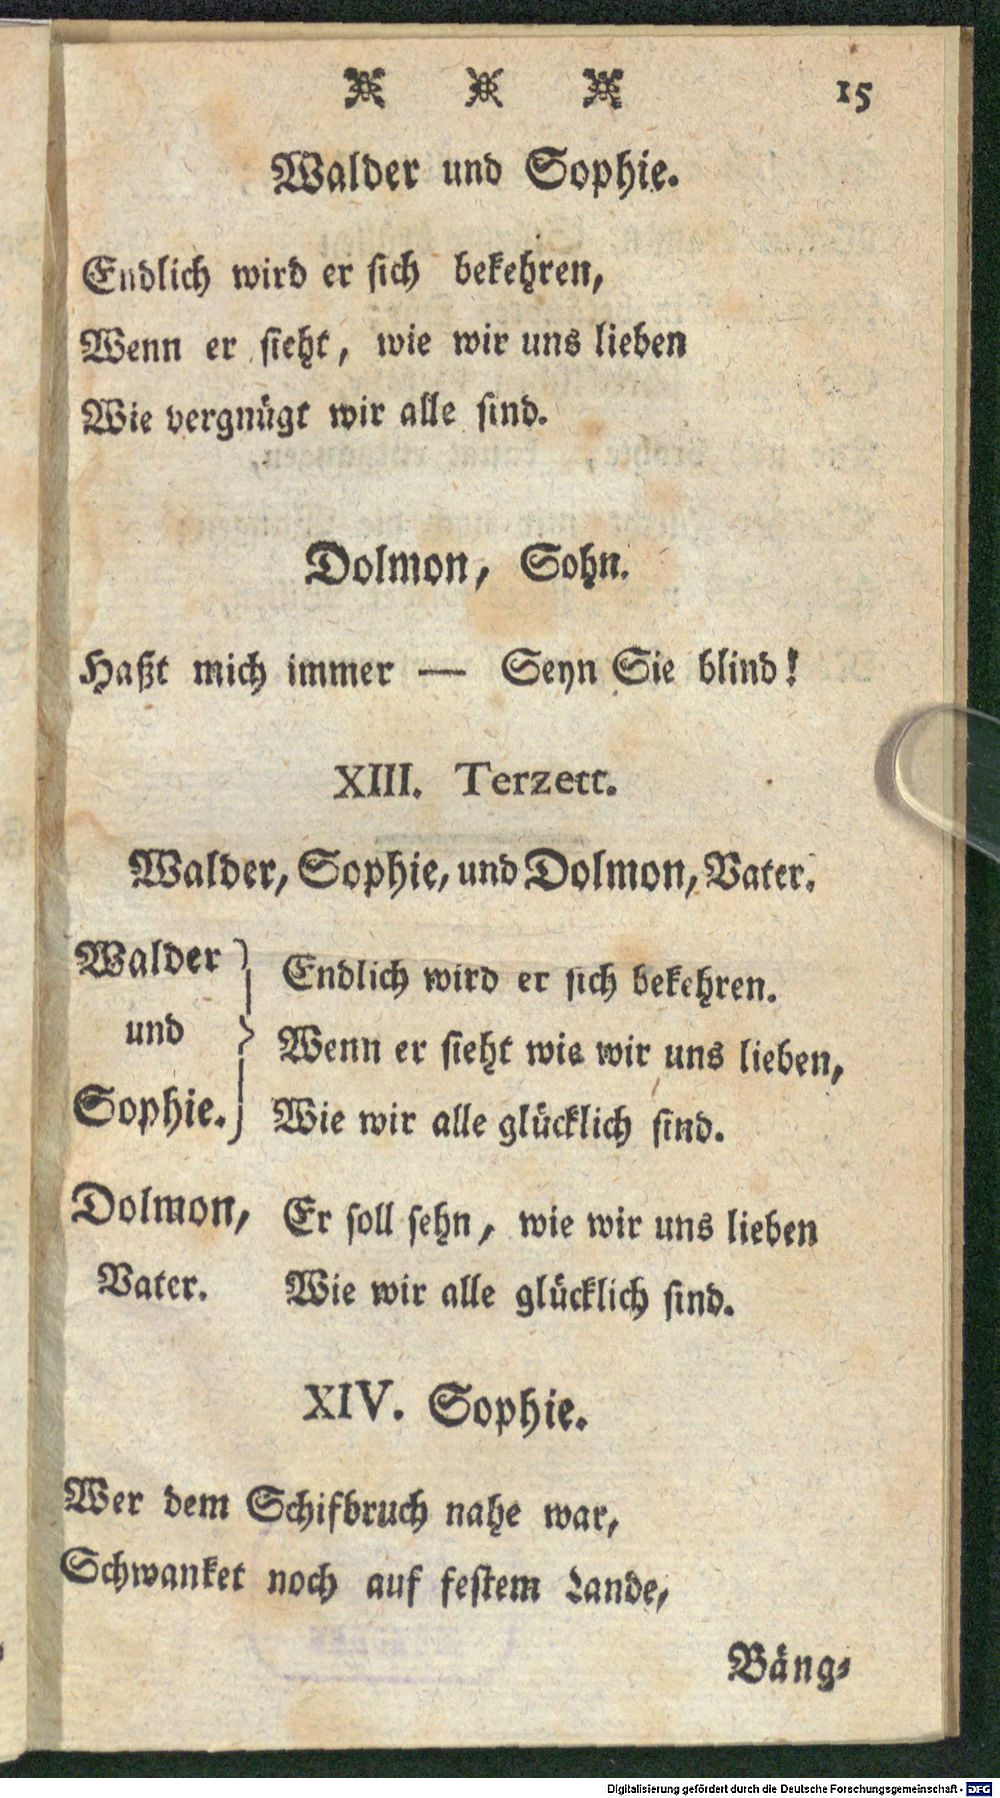 15
Walder und Sophie.
Endlich wird er sich bekehren,
Wenn er sieht, wie wir uns lieben
Wie vergnügt wir alle sind.
Dolmon, Sohn.
Haßt mich immer — Seyn Sie blind!
XIII. Terzett.
Walder, Sophie, und Dolmon, Vater.
Walder
und
Sophie.
Endlich wird er sich bekehren.
Wenn er sieht wie wir uns lieben,
Wie wir alle glücklich sind.
Dolmon,
Vater.
Er soll sehn, wie wir uns lieben
Wie wir alle glücklich sind.
XIV. Sophie.
Wer dem Schifbruch nahe war,
Schwanket noch auf festem Lande,
Bäng-
Digitalisierung gefördert durch die Deutsche Forschungsgemeinschaft - DFG